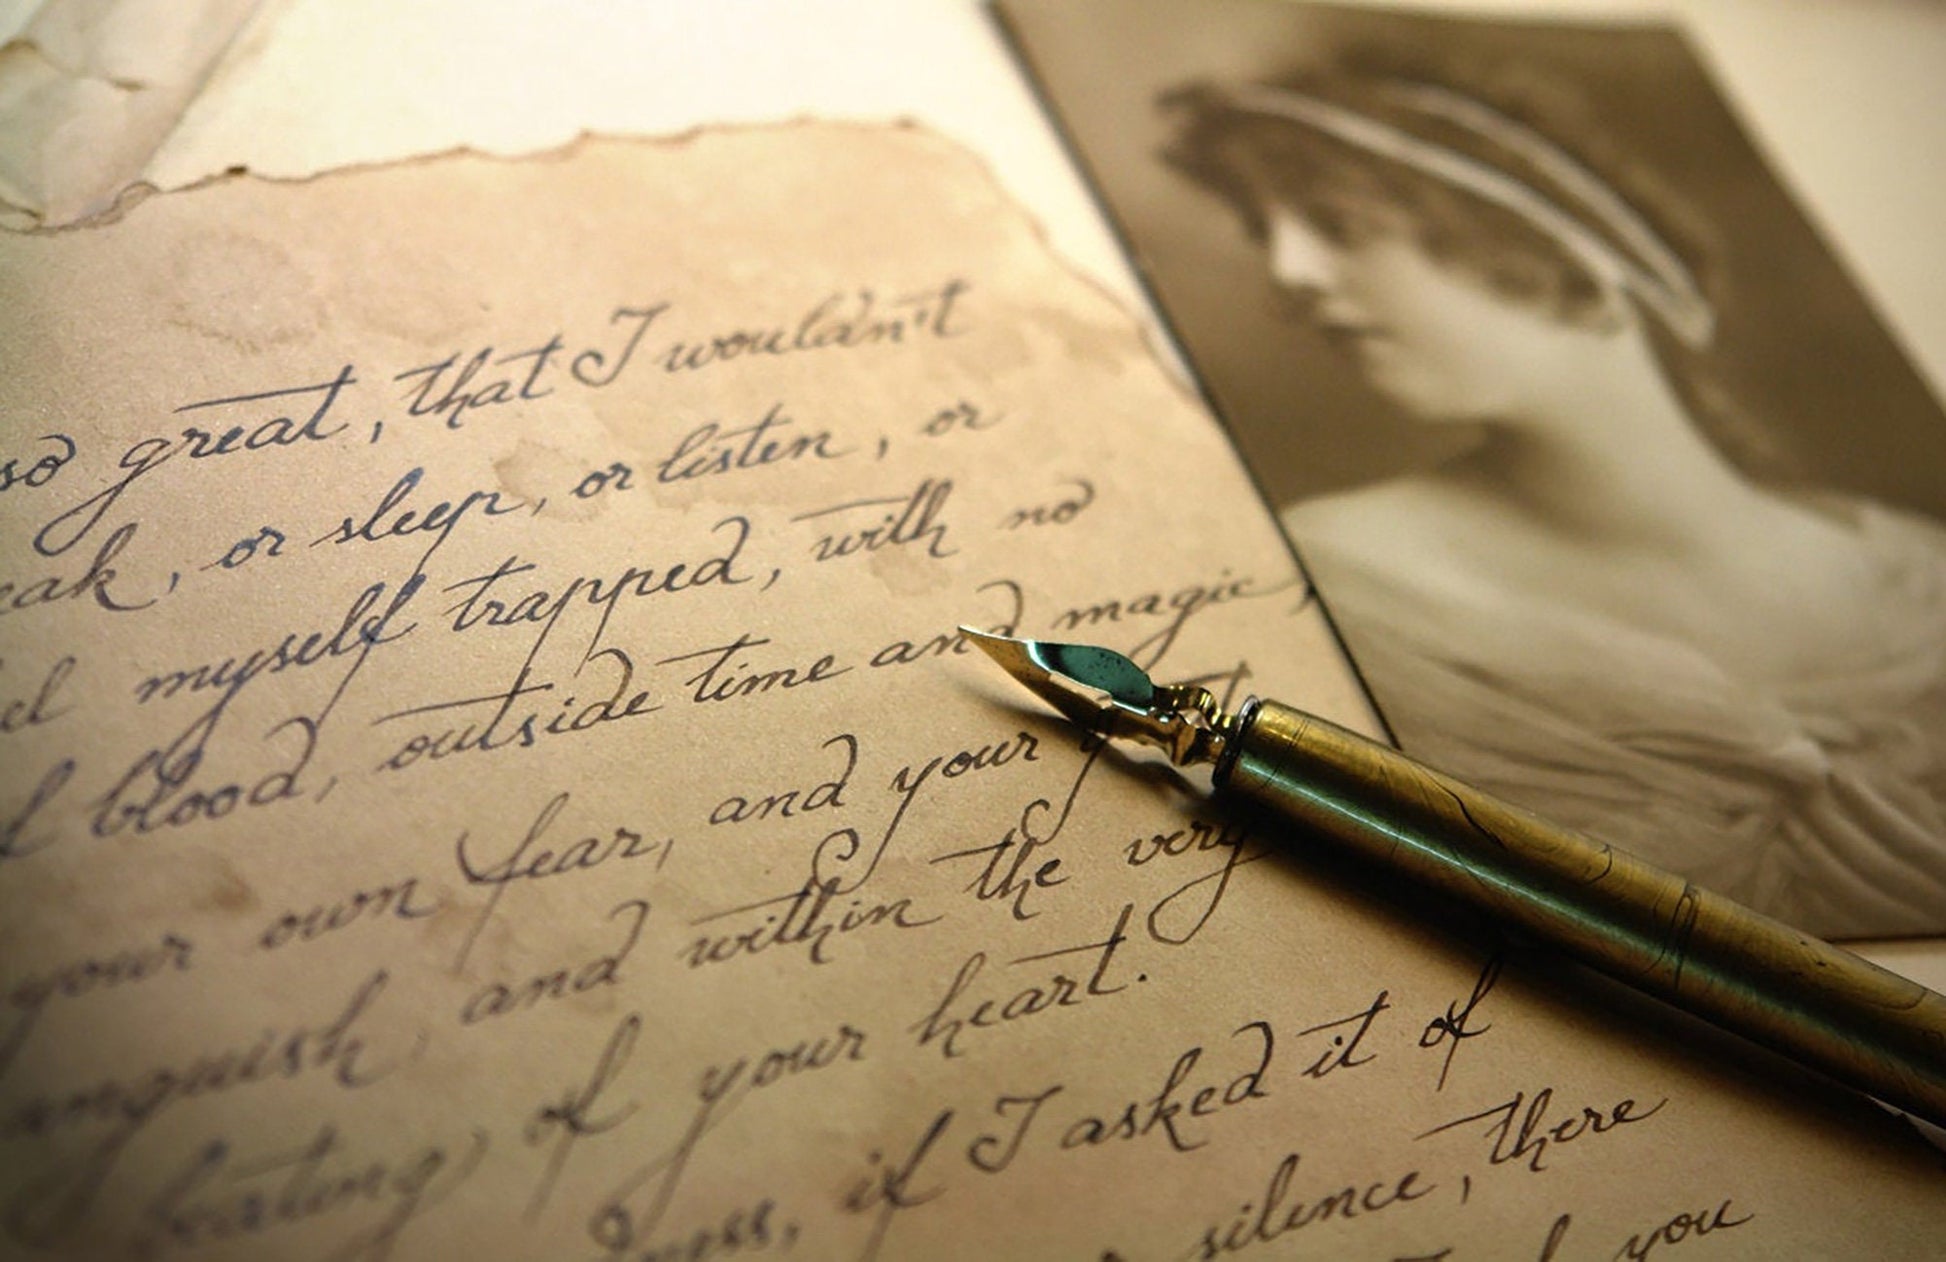 so great, that I wouldn't
or sleep, or listen, or
myself trapped, with no
blood, outside time and magic,
your own fear, and your
and within the very
beating, of your heart.
if I asked it of
silence, there
you